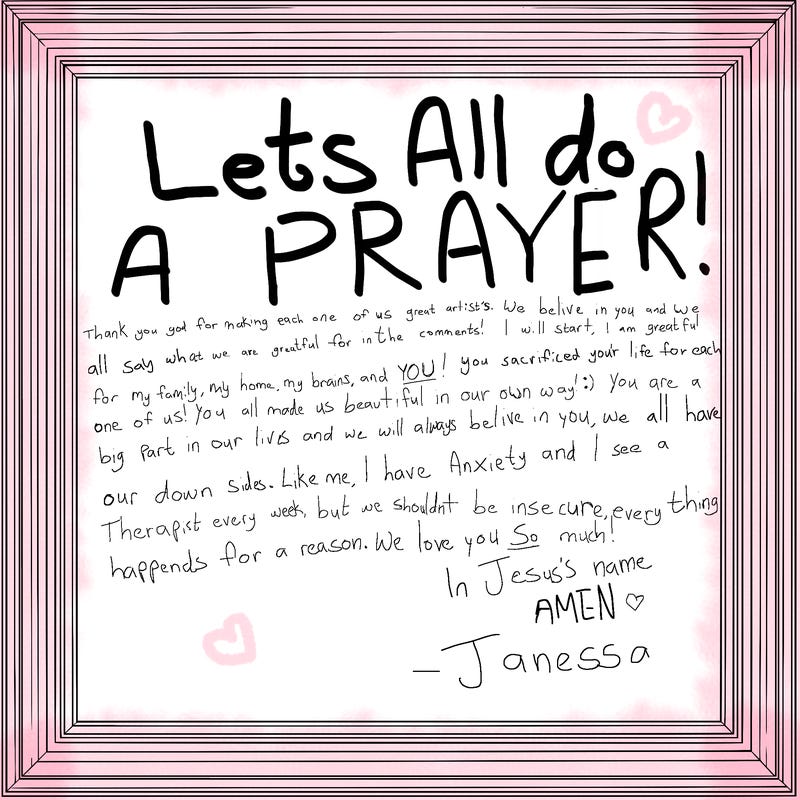 Lets All do
A PRAYER!
Thank you god for making each one of us great artist's. We belive in you and we
all say what we are greatful for in the comments! I will start, I am greatful
for my family, my home, my brains, and YOU! you sacrificed your life for each
one of us! You all made us beautiful in our own way! :) You are a
big part in our lives and we will always belive in you, we all have
our down sides. Like me, I have Anxiety and I see a
Therapist every week, but we shouldnt be insecure, every thing
happends for a reason. We love you So much!
In Jesus's name
AMEN ♡
- Janessa